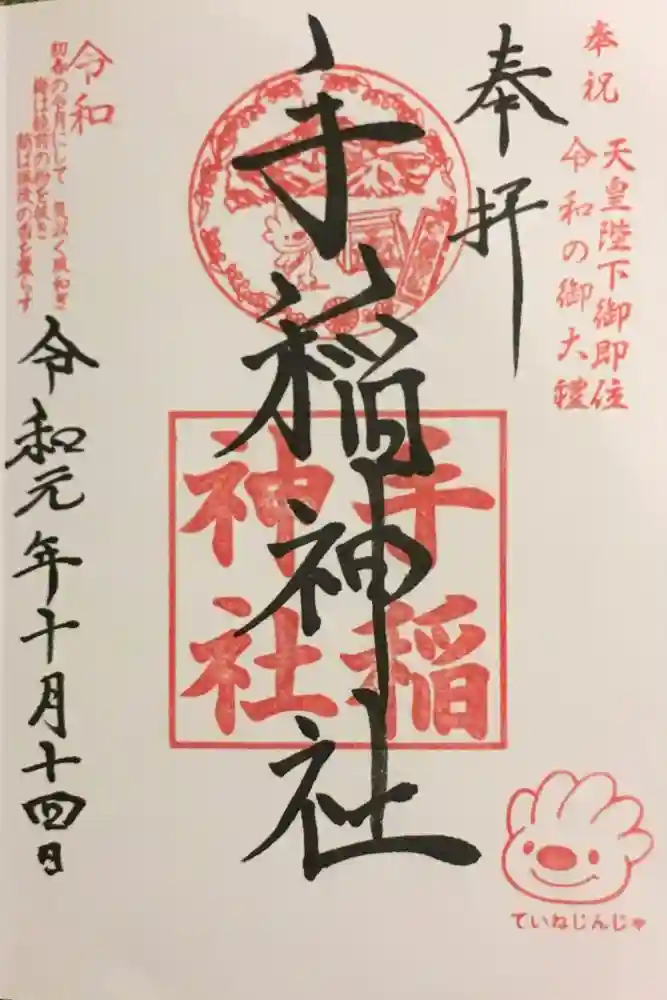 奉祝
天皇陛下御即位
令和の御大禮
奉拝
手稲神社
手稲
神社
令和
初春の令月にして 気淑く風和ぎ
梅は鏡前の粉を披き
蘭は珮後の香を薫らす
令和元年十月十四日
ていねじんじゃ